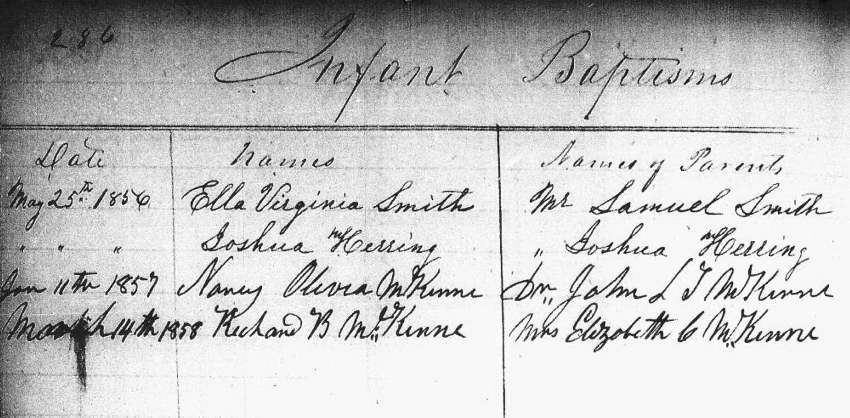 286
Infant Baptisms
Date Names Names of Parents
May 25th 1856 Ella Virginia Smith Mr Samuel Smith
" " " Joshua W Herring " Joshua W Herring
Jan 11th 1857 Nancy Olivia McKinne Dr. John L J McKinne
March 14th 1858 Richard B McKinne Mrs Elizabeth C McKinne